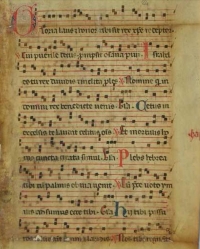 Gloria laus et honor tibi sit rex xpe redemptor
Cui puerile decus prompsit osanna pium Israel
es tu rex davidis inclita proles Nomine qui in
domini rex benedicte venis Gla Cetus in
excelsis te laudat celicus omnis Et mortalis homo
cuncta creata simul Gla Plebs hebrea
tibi cum palmis obvia venit Cum prece voto ym
nis assumus ecce tibi Gla Hi tibi passu